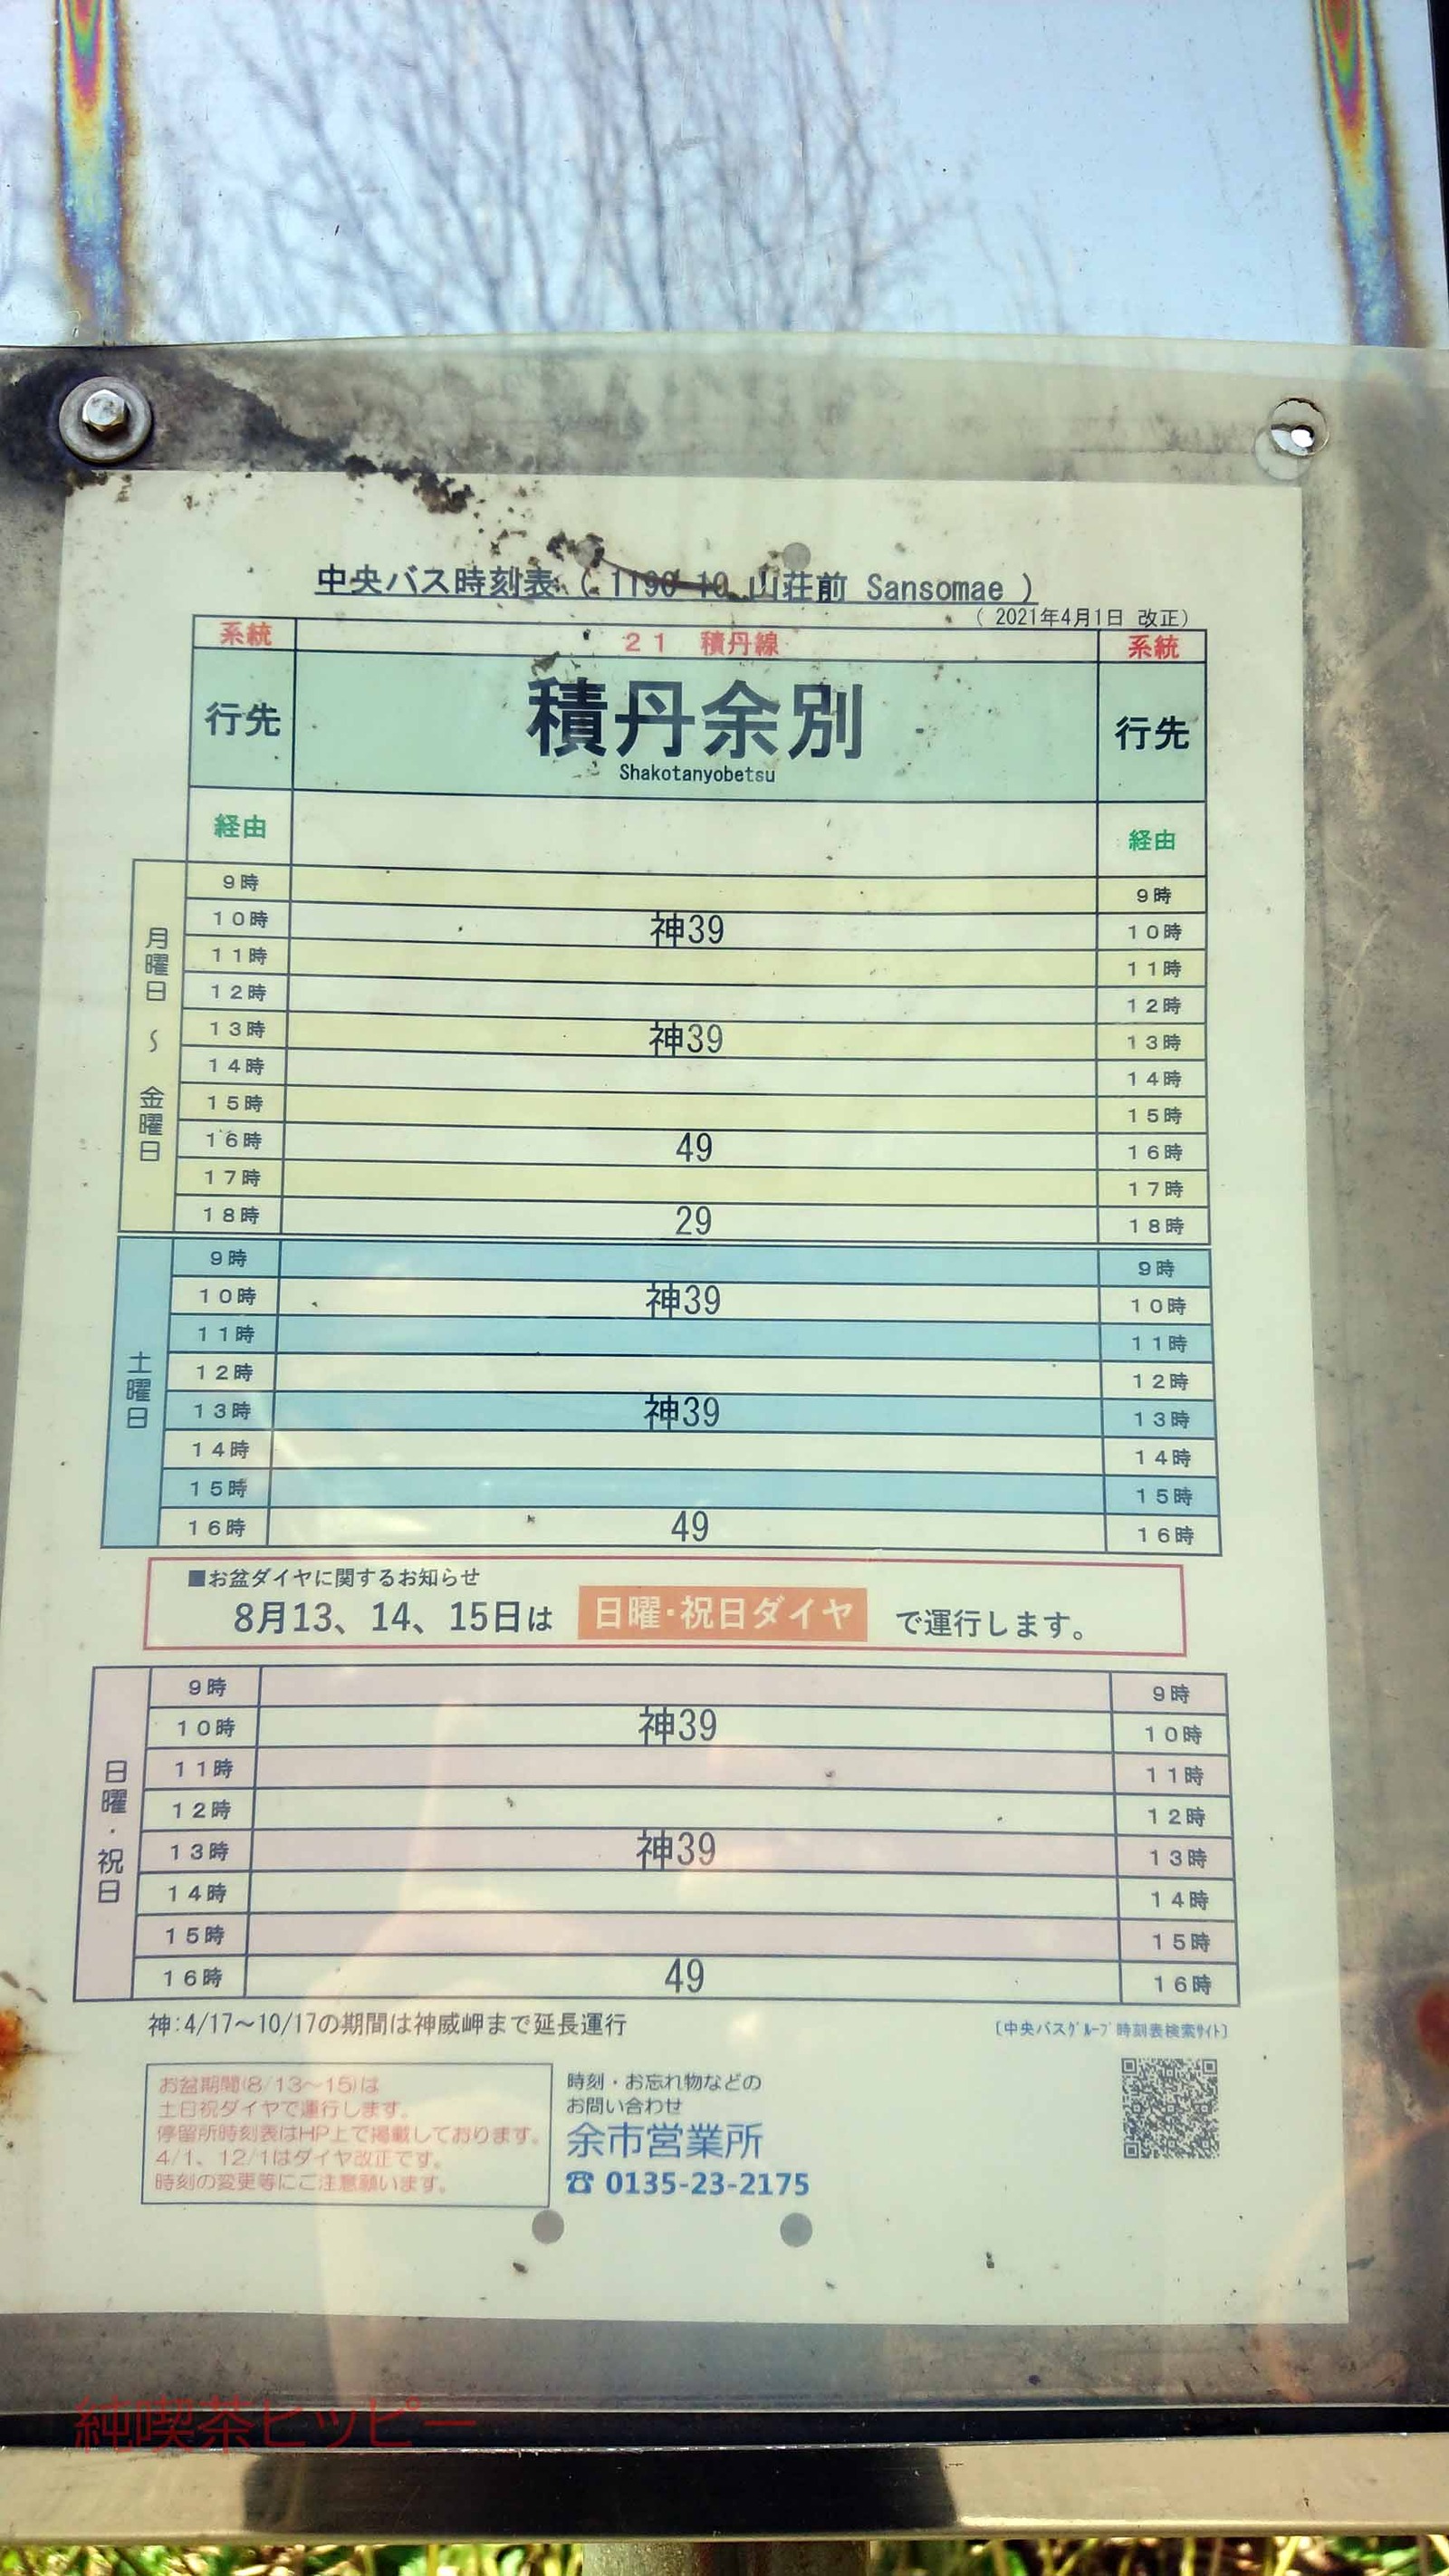 中央バス時刻表 ( 1190 10 山荘前 Sansomae )
( 2021年4月1日 改正)
系統 21 積丹線 系統
行先 積丹余別 行先
Shakotanyobetsu
経由 経由
月曜日 ～ 金曜日
9時 9時
10時 神39 10時
11時 11時
12時 12時
13時 神39 13時
14時 14時
15時 15時
16時 49 16時
17時 17時
18時 29 18時
土曜日
9時 9時
10時 神39 10時
11時 11時
12時 12時
13時 神39 13時
14時 14時
15時 15時
16時 49 16時
■お盆ダイヤに関するお知らせ
8月13、14、15日は 日曜・祝日ダイヤ で運行します。
日曜・祝日
9時 9時
10時 神39 10時
11時 11時
12時 12時
13時 神39 13時
14時 14時
15時 15時
16時 49 16時
神:4/17～10/17の期間は神威岬まで延長運行
〔中央バスグループ時刻表検索サイト〕
お盆期間(8/13～15)は
土日祝ダイヤで運行します。
停留所時刻表はHP上で掲載しております。
4/1、12/1はダイヤ改正です。
時刻の変更等にご注意願います。
時刻・お忘れ物などの
お問い合わせ
余市営業所
☎ 0135-23-2175
純喫茶ヒッピー